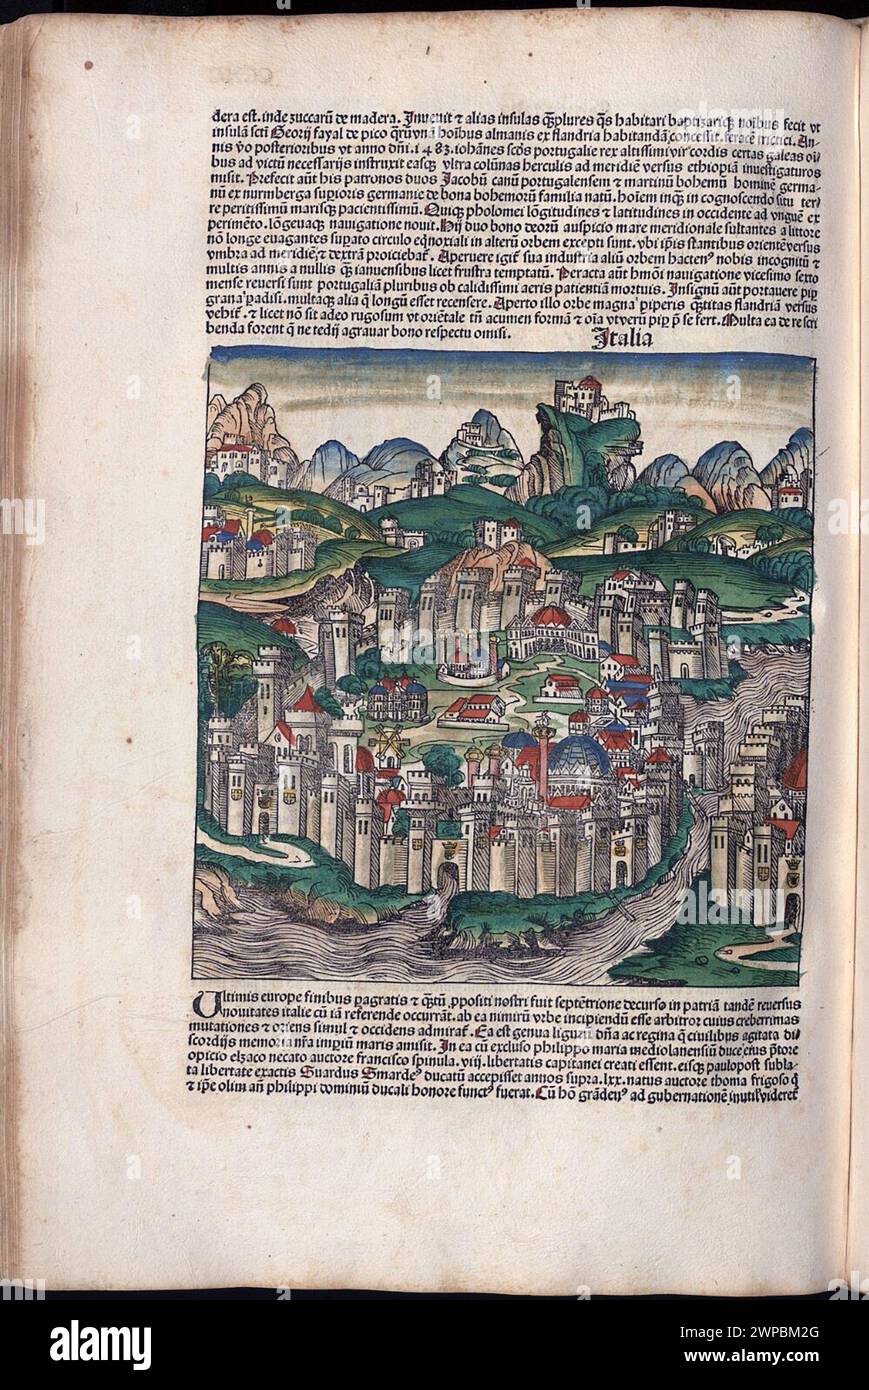 dera est. inde zuccarū de madera. Inuenit ⁊ alias insulas q̄plures q̄s habitari baptizariq̄ noībus fecit vt
insulā scti Georij fayal de pico q̄rū vnā hoībus almanis ex flandria habitandā concessit. feracē tritici. An-
nis ṽo posterioribus vt anno dn̄i. 1483. iohānes scd̄s portugalie rex altissimi vir cordis certas galeas oī-
bus ad victū necessarijs instruxit easq̄ vltra colūnas herculis ad meridiē versus ethiopiā inuestigaturos
misit. Prefecit aūt his patronos duos Jacobū canū portugalensem ⁊ martinū bohemū hominē germa-
nū ex nurmberga supioris germanie de bona bohemorū familia natū. hoīem inq̄ in cognoscendo situ ter-
re peritissimū marisq̄ pacientissimū. Quiq̄ ptholomei lōgitudines ⁊ latitudines in occidente ad vnguē ex
perimēto. lōgeuaq̄ nauigatione nouit. Hij duo bono deorū auspicio mare meridionale sulcantes a littore
nō longe euagantes supato circulo eqnoxiali in alterū orbem excepti sunt. vbi ip̄is stantibus orientē versus
vmbra ad meridiē ⁊ dextrā proiciebat̄. Aperuere igit̄ sua industria aliū orbem hacten⁹ nobis incognitū ⁊
multis annis a nullis q̄ ianuensibus licet frustra temptatū. Peracta aūt hmōi nauigatione vicesimo sexto
mense reuersi sunt portugaliā pluribus ob calidissimi aeris patientiā mortuis. Insignū aūt portauere pip̄
grana padisi. multaq̄ alia q̄ longū esset recensere. Aperto illo orbe magna piperis q̄titas flandriā versus
vehit̄. ⁊ licet nō sit adeo rugosum vt oriētale tn̄ acumen formā ⁊ oīa vt verū pip̄ p se fert. Multa ea de re scri
benda forent q̄ ne tedij agrauar bono respectu omisi.
Italia
Ultimis europe finibus pagratis ⁊ q̄tū p̄positi nostri fuit septētrione decurso in patriā tandē reuersus
nouitates italie cū iā referende occurrāt. ab ea nimirū vrbe incipiendū esse arbitror cuius creberrimas
mutationes ⁊ oriens simul ⁊ occidens admirat̄. Ea est genua ligurū dn̄a ac regina q̄ ciuilibus agitata di
scordijs memoria nr̄a imp̄iū maris amisit. In ea cū excluso philippo maria mediolanensiū duce eiusq̄ p̄tore
opicio elzaco necato auctore francisco spinula. viij. libertatis capitanei creati essent. eisq̄ paulopost subla-
ta libertate exactis Isuardus Smarde⁹ ducatū accepisset annos supra. lxx. natus auctore thoma frigoso q̄
⁊ ip̄e olim an̄ philippi dominiū ducali honore funct⁹ fuerat. Cū hō grāden⁹ ad gubernationē inutil⁹ videret̄
alamy
Image ID: 2WPBM2G
www.alamy.com